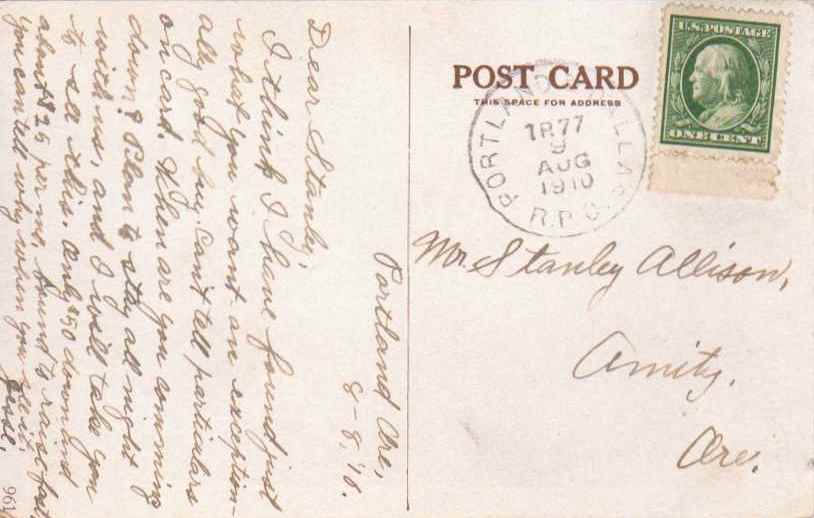 Portland Ore,
8-8,'10.
Dear Stanley,
I think I have found just
what you want an exception-
ally good buy. Can't tell particulars
on card. When are you comming
down? Plan to stay all night
with me, and I will take you
to see this. Only $50 down and
about $25 per mo. Bound to raise fast
you can tell why when you see it.
961
POST CARD
THIS SPACE FOR ADDRESS
U.S. POSTAGE
ONE CENT
PORTLAND
TR.77
9
AUG
1910
R.P.O.
Mr. Stanley Allison,
Amity,
Ore.